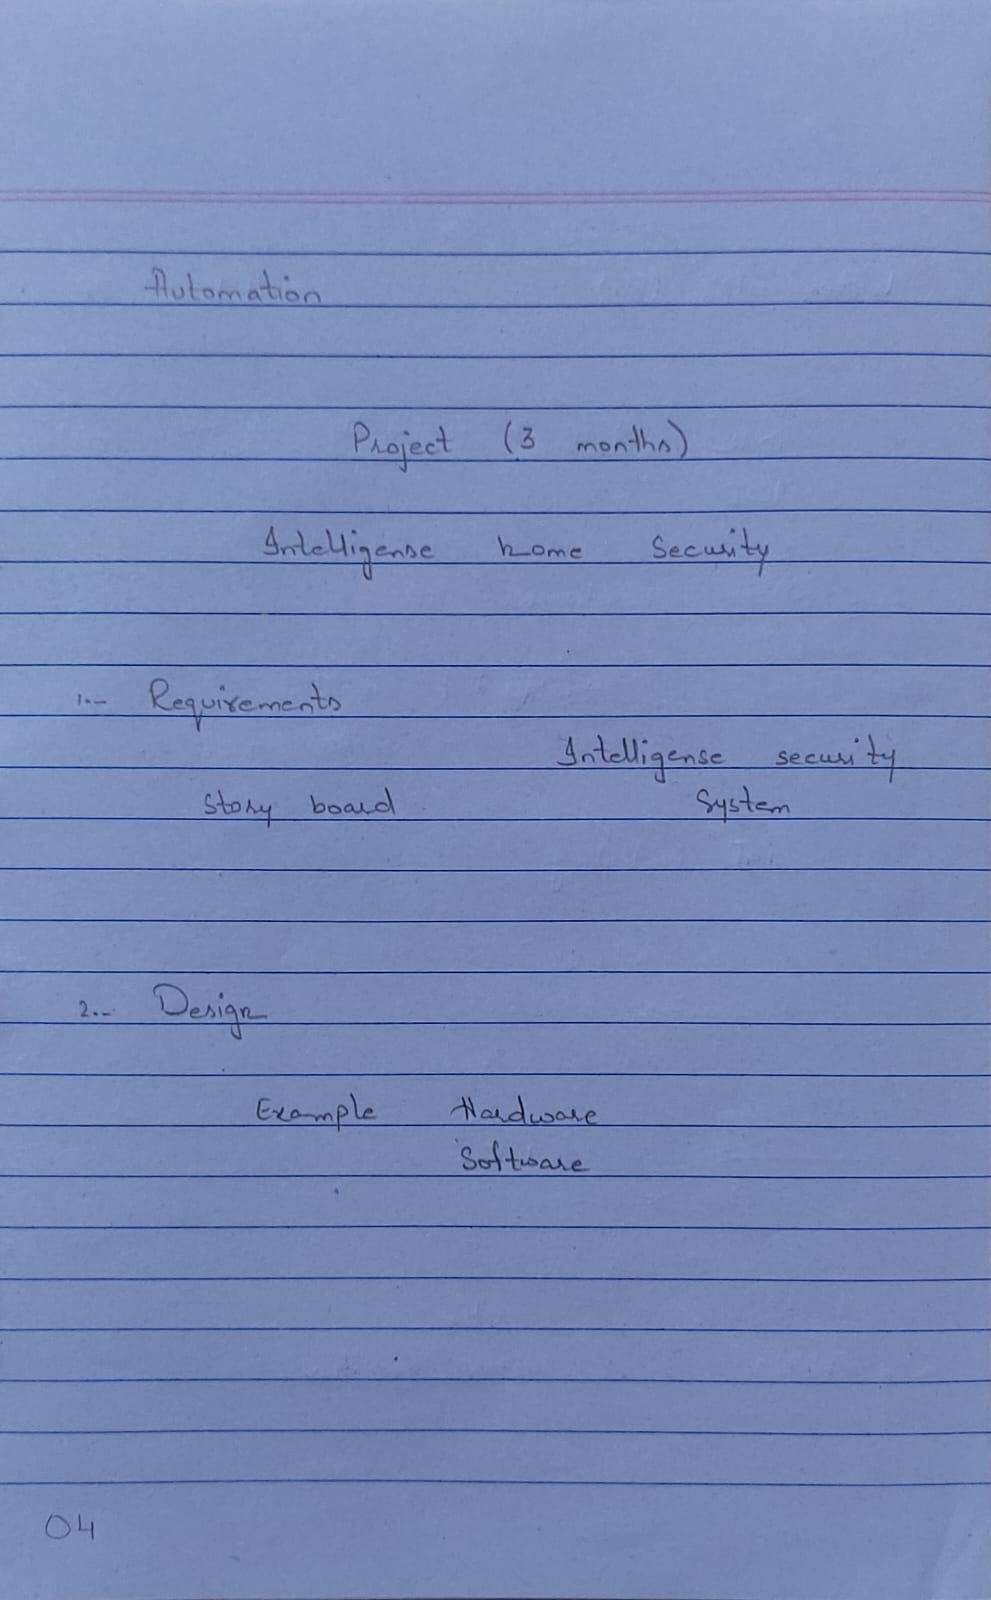 Automation
Project (3 months)
Intelligense home Security
1.- Requirements
Intelligense security
Story board System
2.- Design
Example Hardware
Software
04